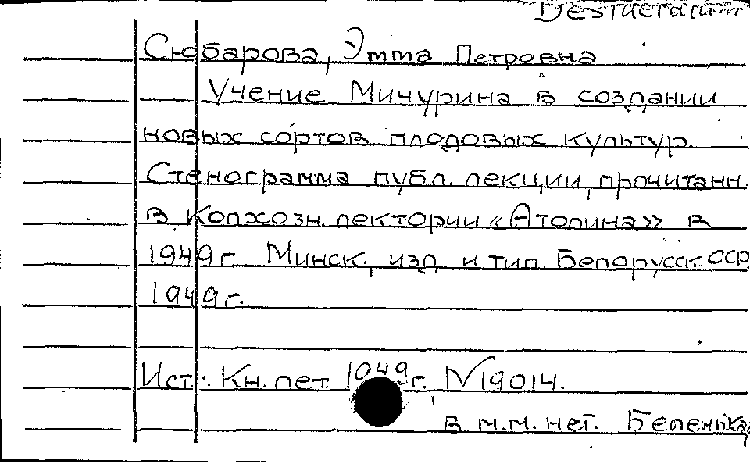 Сюбарова, Эмма Петровна
Учение Мичурина в создании
новых сортов плодовых культур.
Стенограмма публ. лекции, прочитанн.
в Колхозн. лектории «Атолина» в
1949 г. Минск, изд. и тип. Белорусск. ССР
1949 г.
Ист.: Кн. лет. 1949 г. №19014.
в м.м. нет.